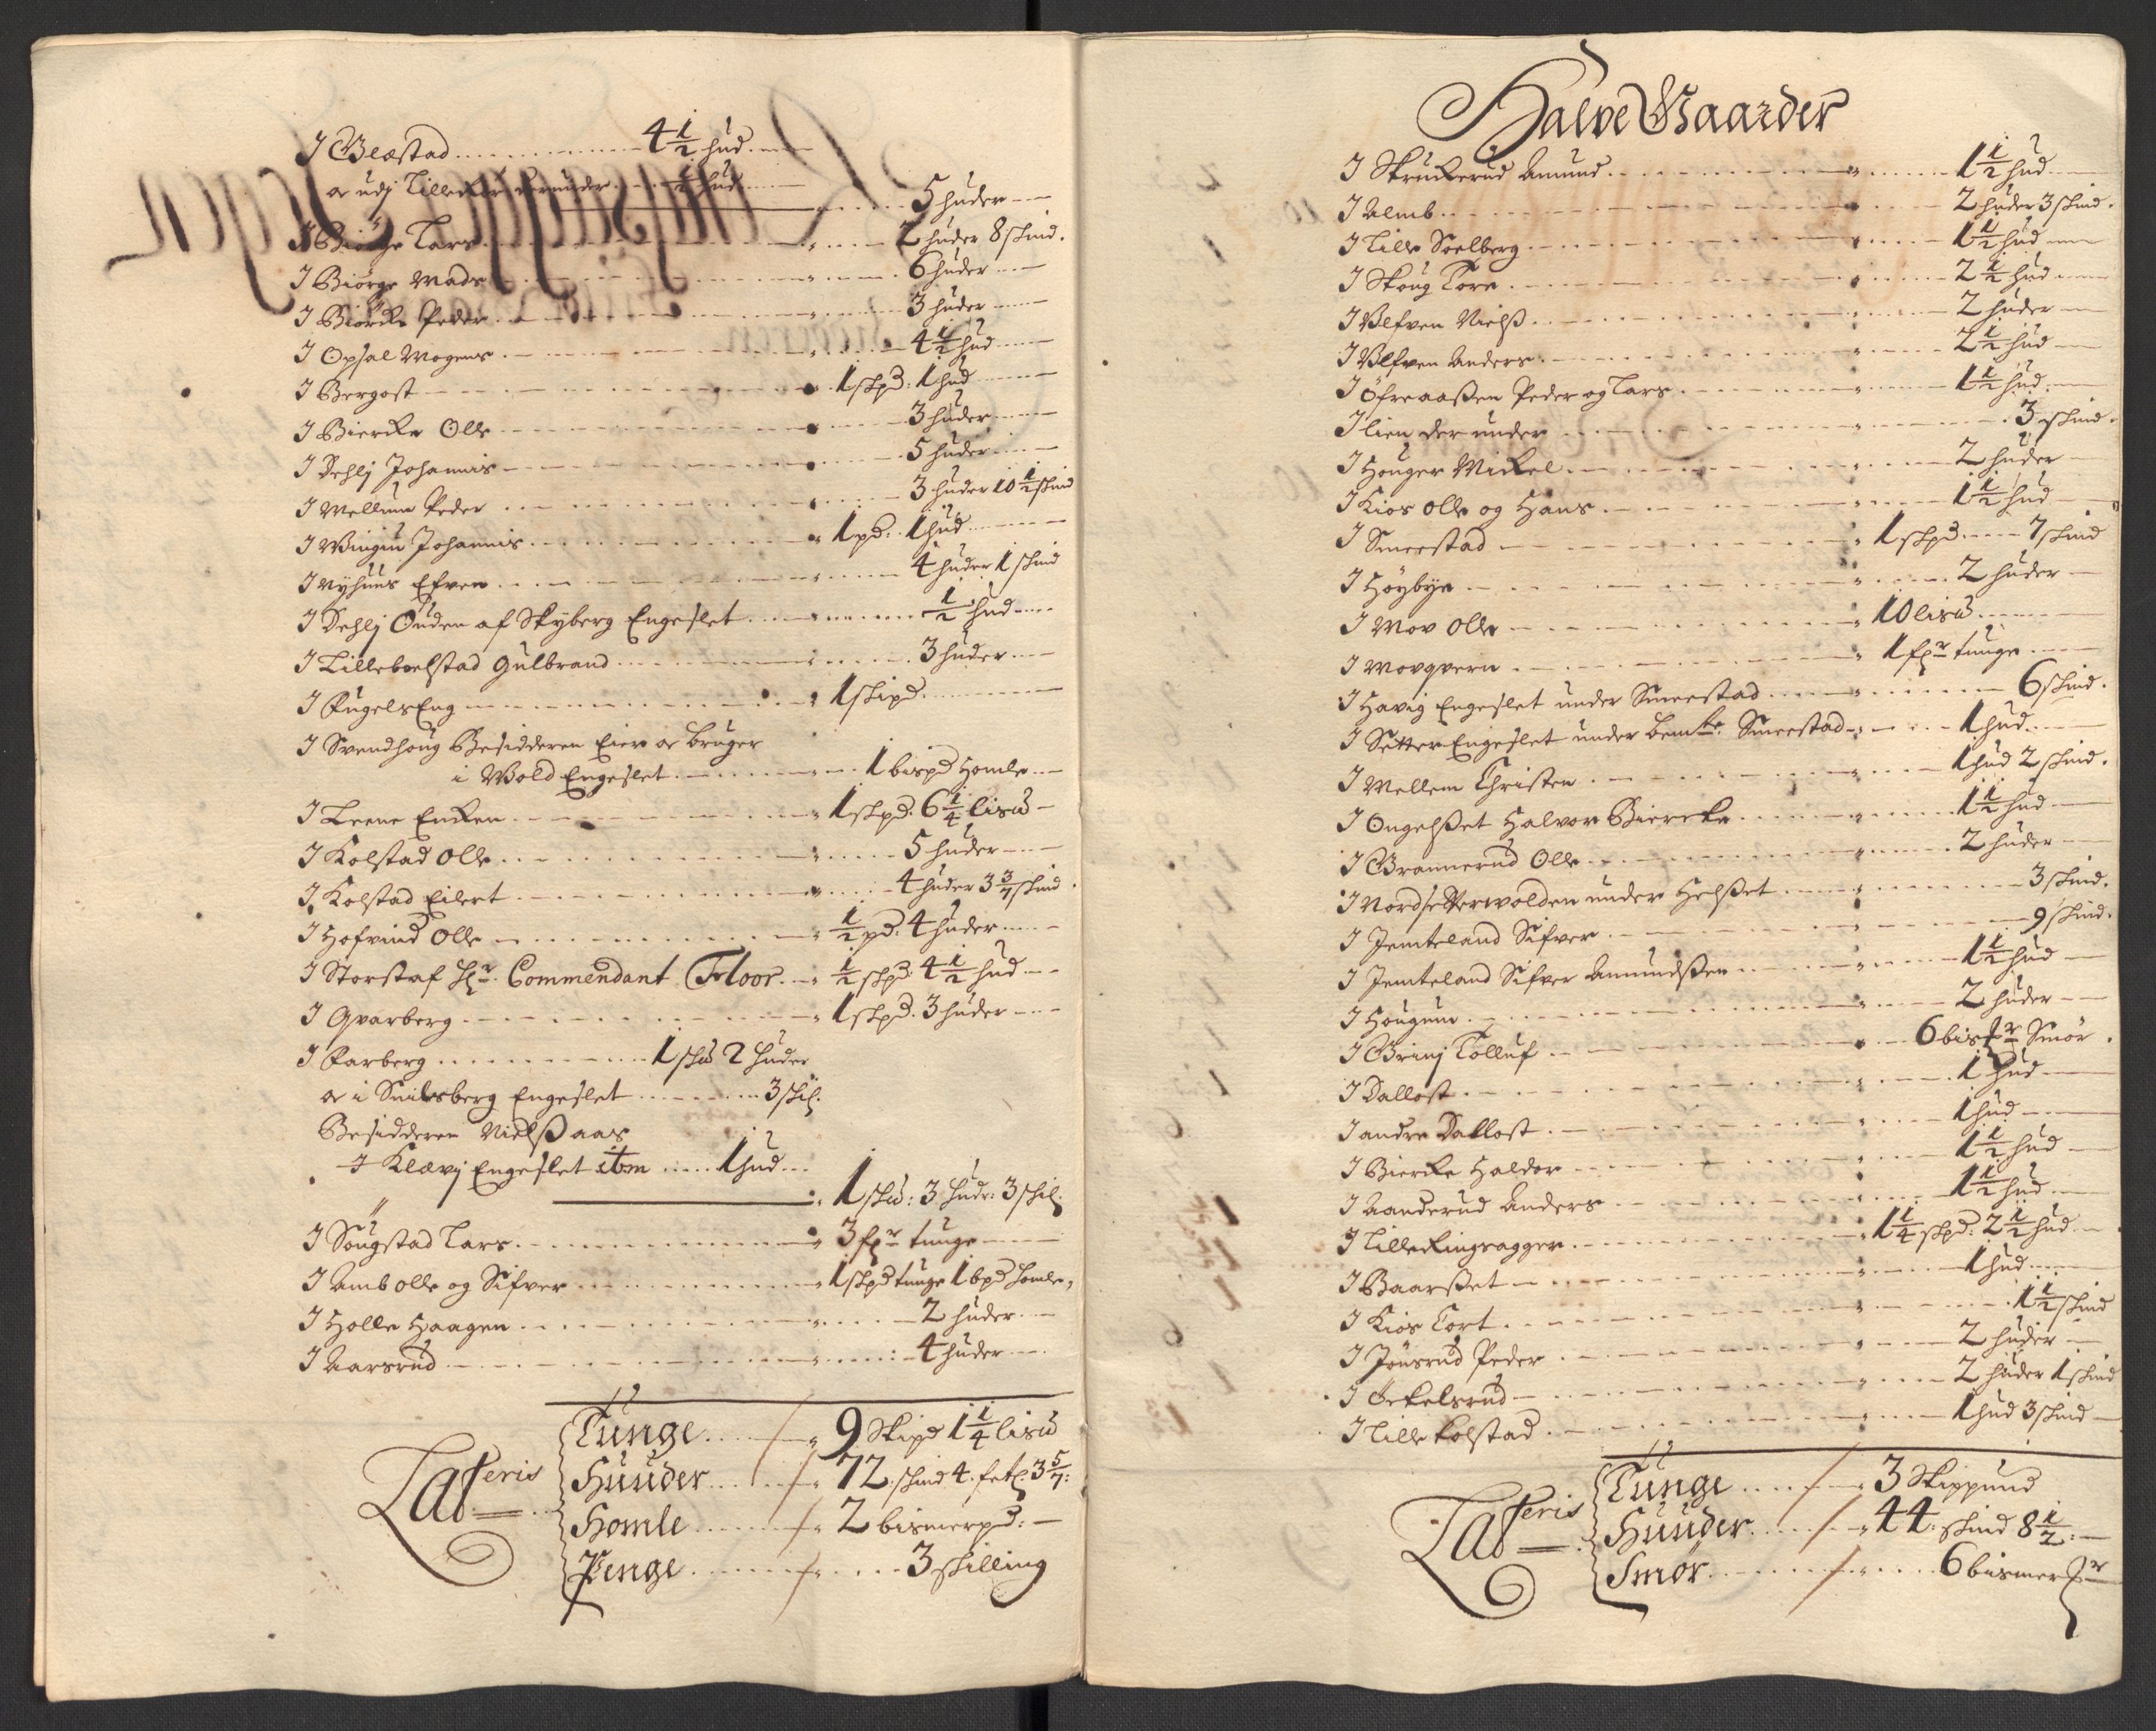 I Blæstad ........ 4 1/2 hud
og udj Lille derunder 1/2 hud
5 huder
I Biørge Lars 2 huder 8 skind.
I Biørge Mads 6 huder
I Biørcke Peder 3 huder
I Opsal Mogens 4 1/2 hud
I Bergost 1 skpd: 1 hud
I Biercke Olle 3 huder
I Dehlj Johannis 5 huder
I Mellum Peder 3 huder 10 1/2 skind
I Wingiu Johannis 1 pd: 1 hud
I Nyhuus Efven 4 huder 1 skind
I Dehlj Ouden af Skyberg Engeslet 1/2 hud
I Lilleboelstad Gulbrand 3 huder
I FugelsEng 1 skipd.
I Svendhoug Besidderen Eier og bruger
i Wold Engeslet 1 bispd Homle
I Leene Encken 1 skpd. 6 1/4 lis℔
I Kolstad Olle 5 huder
I Kolstad Eilert 4 huder 3 3/7 skind
I Hofvind Olle 1/2 pd. 4 huder
I Storstaf Hr. Commendant Floor 1/2 skpd 4 1/2 hud
I Qvarberg 1 skpd. 3 huder
I Farberg 1 sk℔ 2 huder
og i Snilsberg Engeslet 3 skil.
Besidderen Nielß aas
I Klævj Engeslet itm 1 hud
1 sk℔: 3 hudr: 3 skil.
I Sougstad Lars 3 fr tunge
I Amb olle og Sifver 1 skpd tunge 1 bpd homle,
I Holle Haagen 2 huder
I Aarsrud 4 huder
Lateris
Tunge 9 Skipd 1 1/4 lis℔
Huuder 72. skind 4. 3 5/7:
Homle 2 bismerpd:
Penge 3 skilling
Halve Gaarder
I Skruckerud Amund 1 1/2 hud
I Almb 2 huder 3 skind.
I Lille Soelberg 1 1/2 hud
I Skoug Tore 2 1/2 hud
I Ulfven Nielß 2 huder
I Ulfven Anders 2 1/2 hud
I öfreaaßen Peder og Lars 1 1/2 hud
I lien der under 3 skind.
I Houger Mickel 2 huder
I Kios Olle og Hans 1 1/2 hud
I Smeestad 1 skpd 7 skind
I Høybye 2 huder
I Mov Olle 10 lis℔
I Movqvern 1 fr tunge
I Havig Engeslet under Smeestad 6 skind.
I Setter Engeslet under bemte. Smeestad 1 hud
I Mellem Christen 1 hud 2 skind.
I Ongelßet Halvor Biercke 1 1/2 hud
I Brannerud Olle 2 huder
I Nordsetterwolden under Helßet 3 skind.
I Jemteland Sifver 9 skind.
I Jemteland Sifver Amundßen 1 1/2 hud
I Hougum 2 huder
I Grinj Tolluf 6 bismr Smør.
I Dallost 1 hud
I andre Dallost 1 hud
I Biercke Haldor 1 1/2 hud
I Aanderud Anders 1 1/2 hud
I Lille Ringsagger 1 1/4 skpd: 2 1/2 hud
I Baarßet 1 hud
I Kios Tort 1 1/2 skind
I Jønsrud Peder 2 huder
I Eckelsrud 2 huder 1 skind
I Lille Kolstad 1 hud 3 skind
Lateris
Tunge 3 Skippund
Huuder 44. skind 8 1/2:
Smør 6 bismer